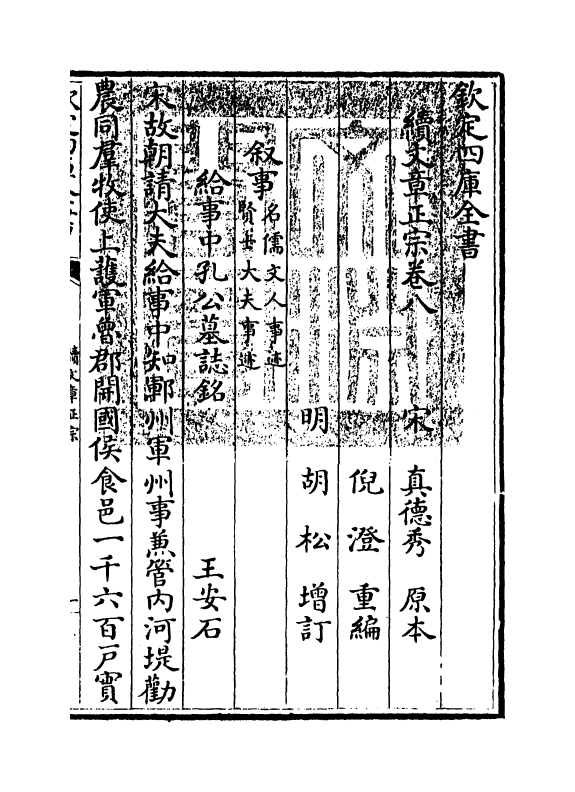 欽定四庫全書
續文章正宗卷八
宋 真德秀 原本
倪澄 重編
明 胡松 增訂
叙事
名儒文人事迹
賢士大夫事迹
給事中孔公墓誌銘
王安石
宋故朝請大夫給事中知鄆州軍州事兼管内河堤勸
農同羣牧使上護軍魯郡開國侯食邑一千六百户實
續文章正宗
一